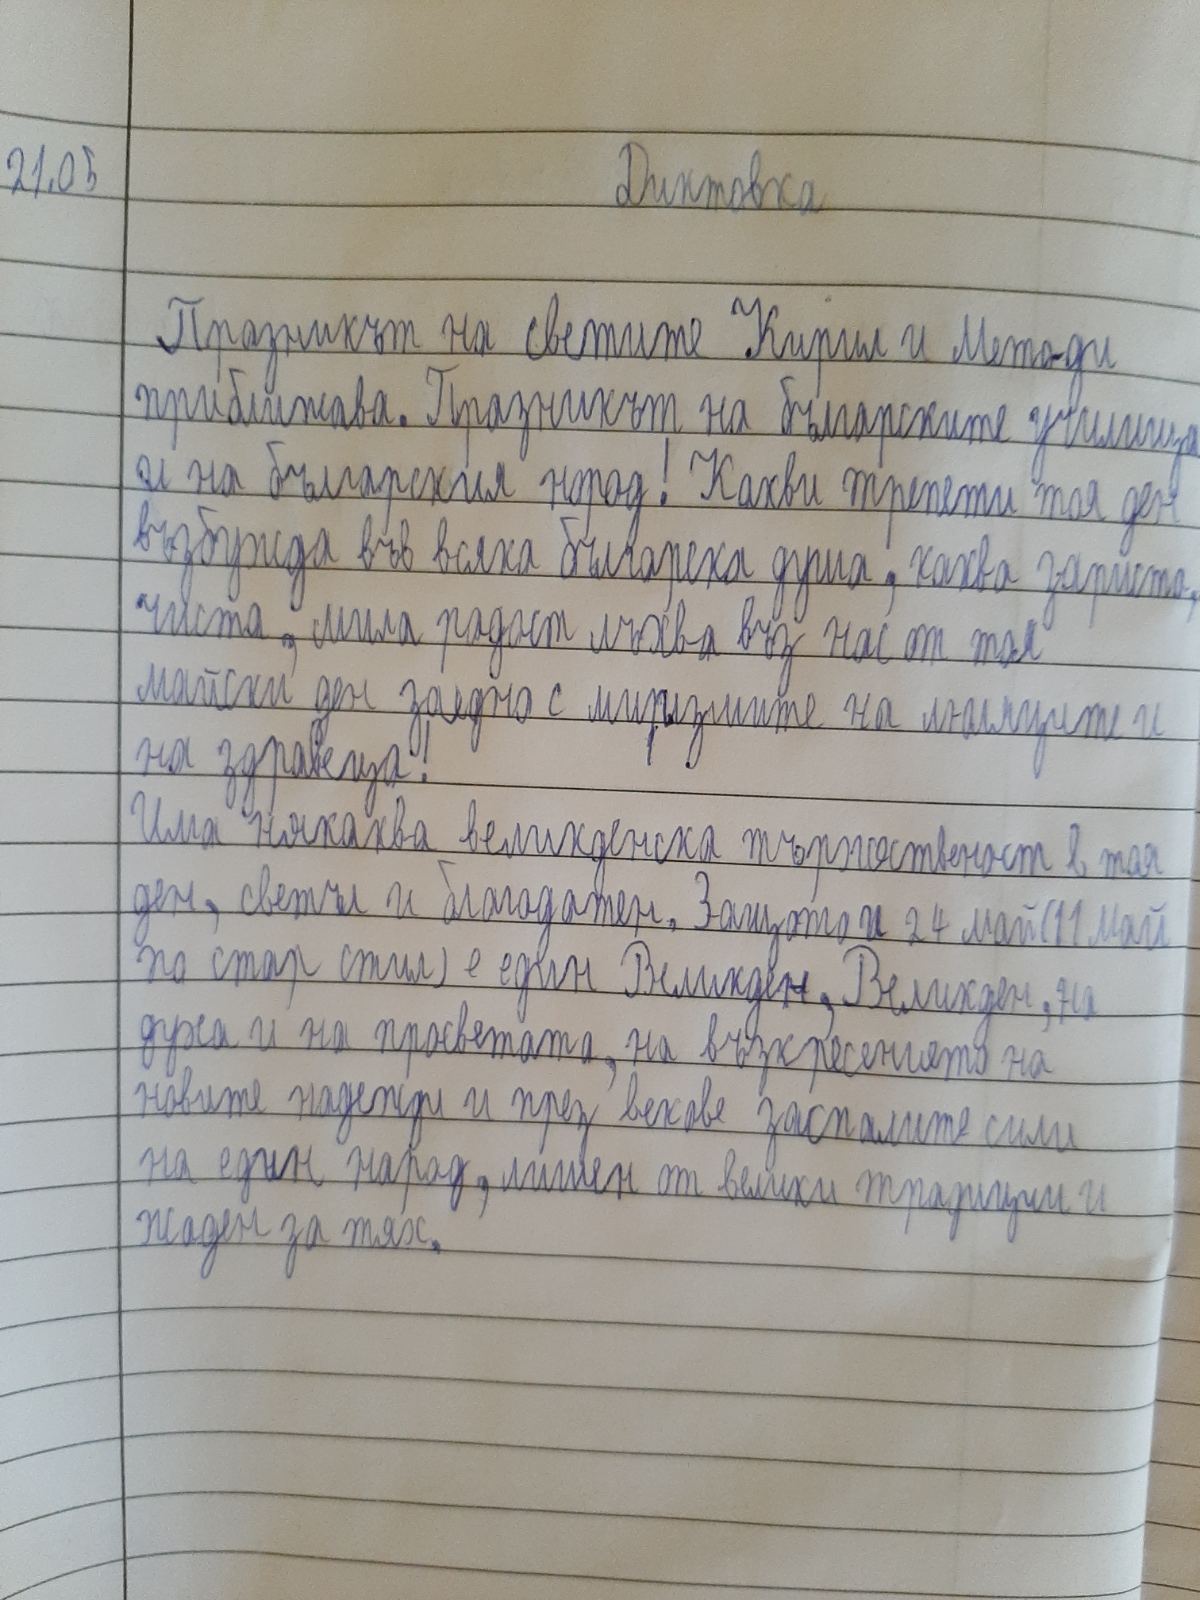 21.05
Диктовка
Празникът на светите Кирил и Методи
приближава. Празникът на българските училища
и на българския народ! Какви трепети тоя ден
възбужда във всяка българска душа, каква зариста,
чиста, мила радост лъхва въз нас от тоя
майски ден заедно с миризмите на люляците и
на здравеца!
Има някаква великденска тържественост в тоя
ден, светъл и благодатен. Защото и 24 май (11 Май
по стар стил) е един Великден, Великден, на
духа и на просветата, на възкресението на
новите надежди и през векове заспалите сили
на един народ, лишен от велики традиции и
жаден за тях.